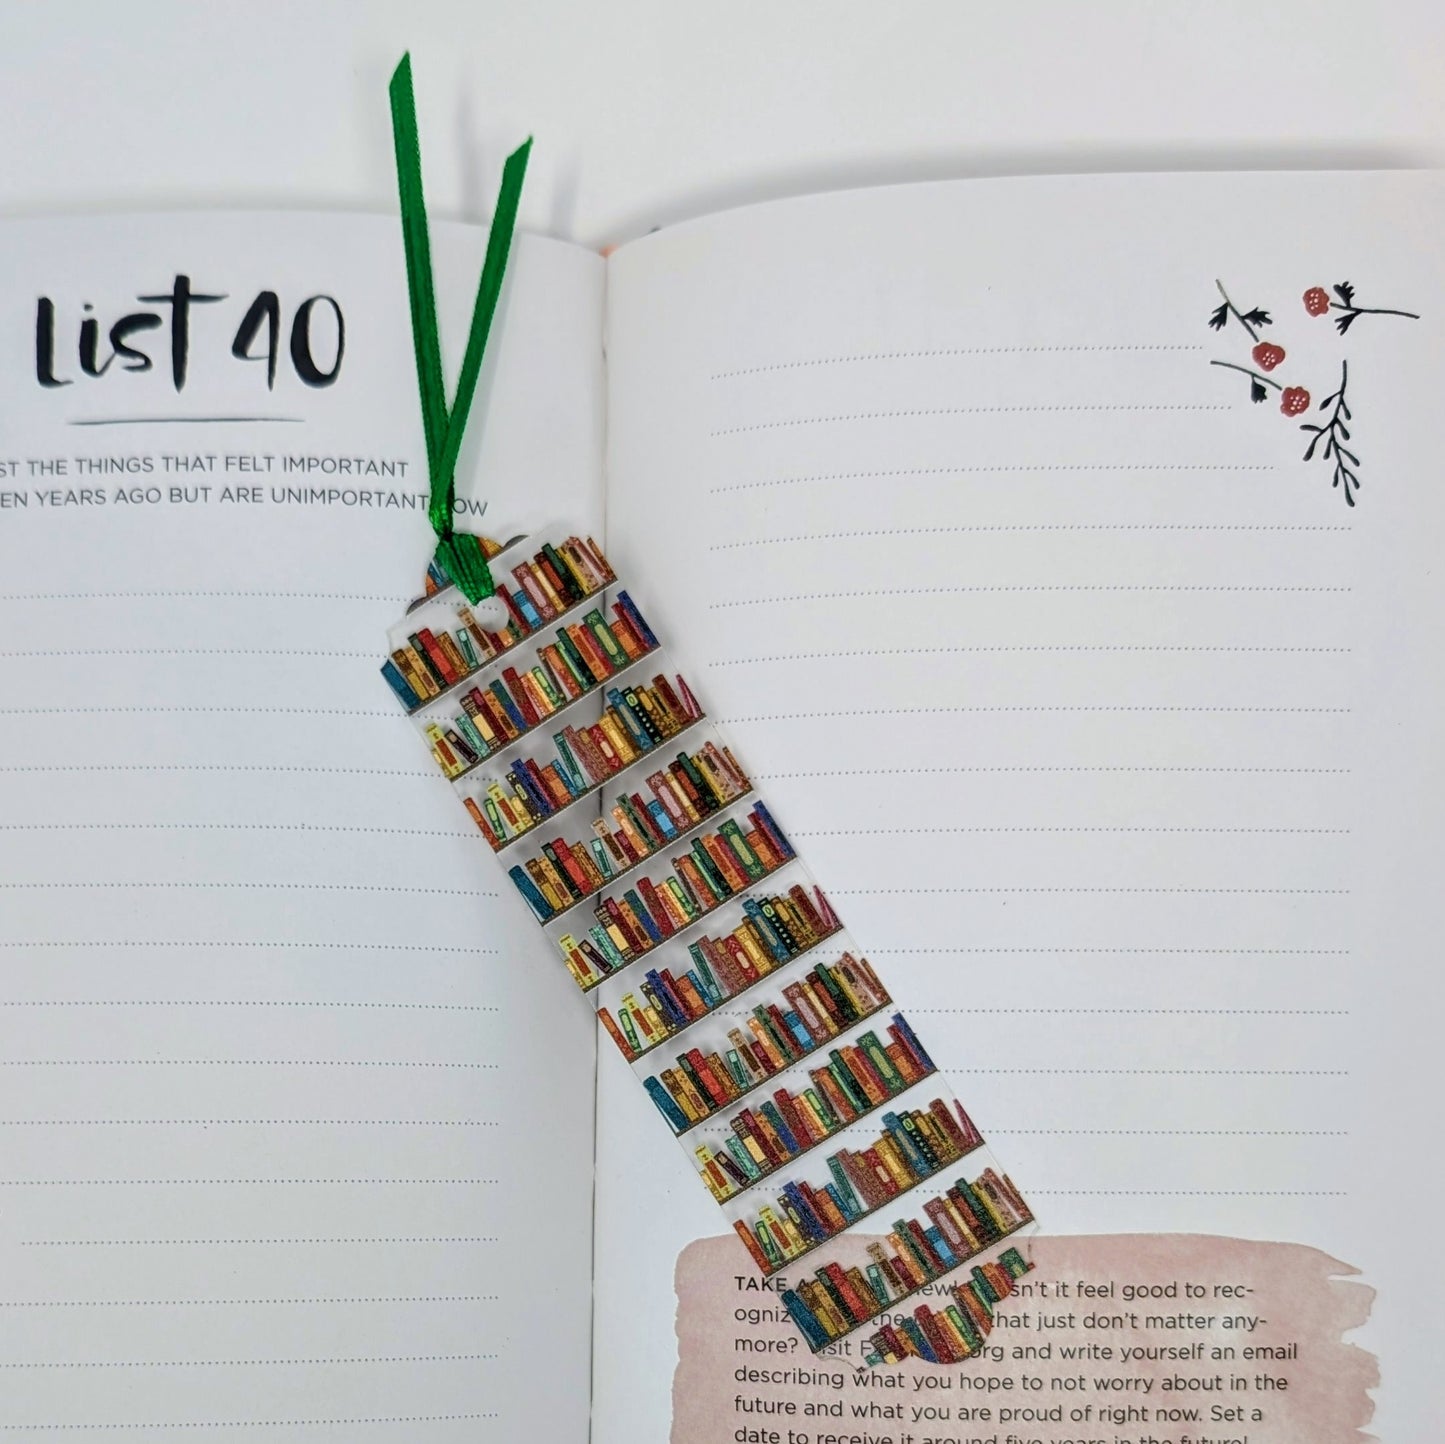 List 40
ST THE THINGS THAT FELT IMPORTANT
EN YEARS AGO BUT ARE UNIMPORTANT OW
TAKE new! sn't it feel good to rec-
ogniz the that just don't matter any-
more? isit F rg and write yourself an email
describing what you hope to not worry about in the
future and what you are proud of right now. Set a
date to receive it around five years in the future!